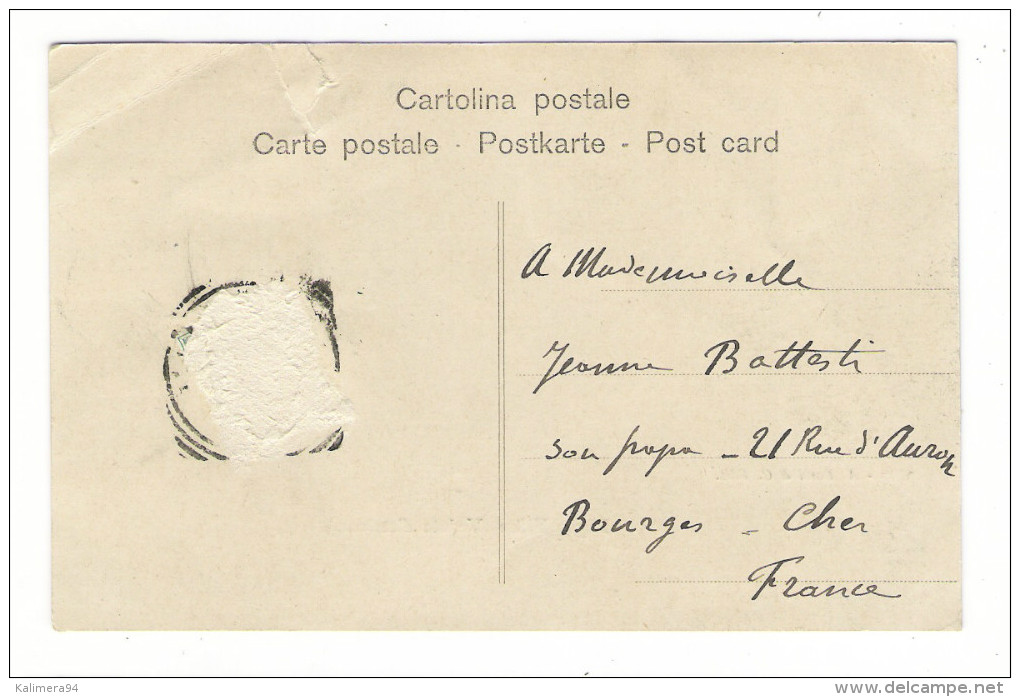 Cartolina postale
Carte postale - Postkarte - Post card
A Mademoiselle
Jeanne Battesti
son papa - 21 Rue d'Auron
Bourges - Cher
France
Kalimera94
www.delcampe.net